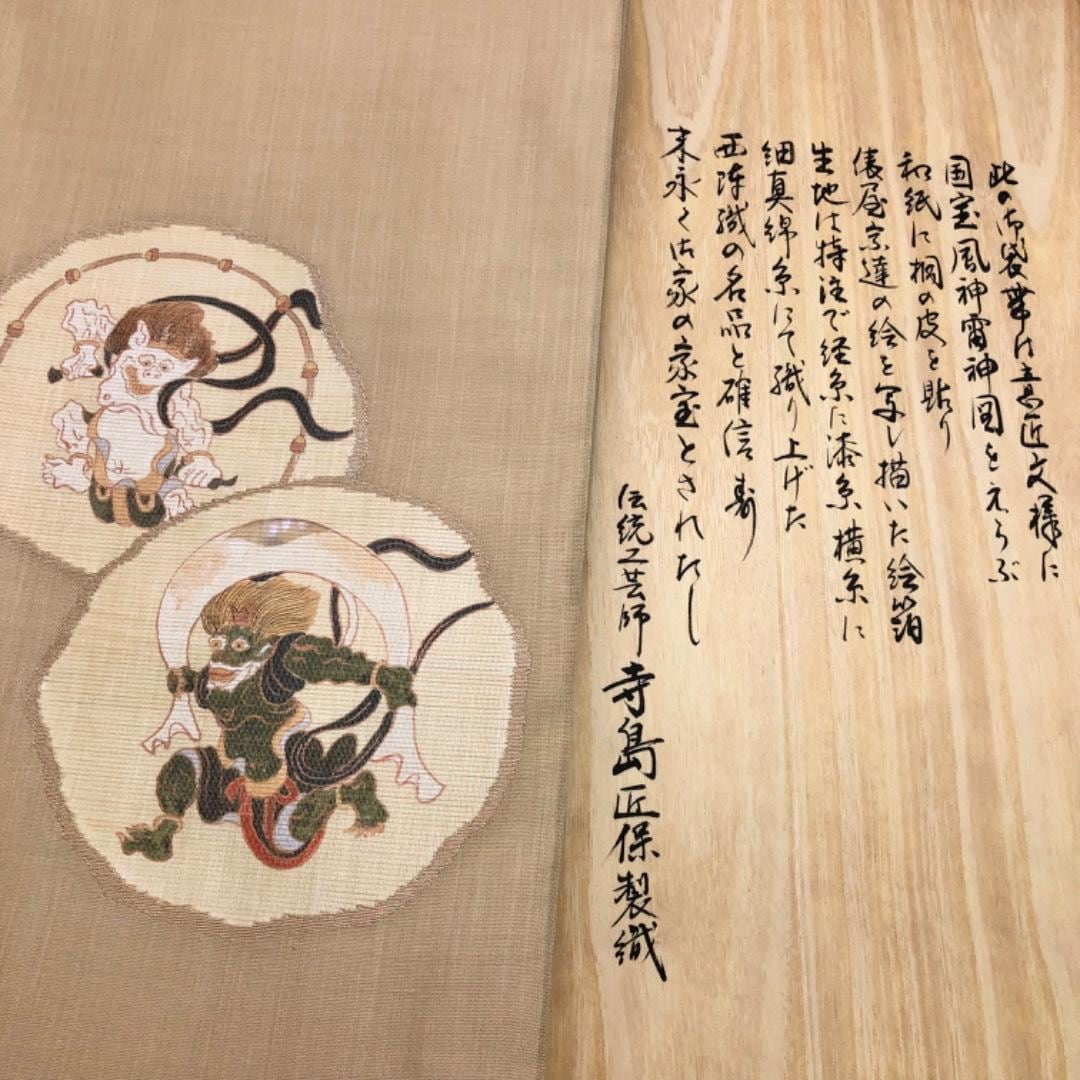 此の御袋帯は意匠文様に
国宝風神雷神図をえらぶ
和紙に桐の皮を貼り
俵屋宗達の絵を写し描いた絵箔
生地は特注で経糸に漆糸横糸に
細真綿糸にて織り上げた
西陣織の名品と確信
末永く御家の家宝とされたし
伝統工芸師 寺島匠保製織